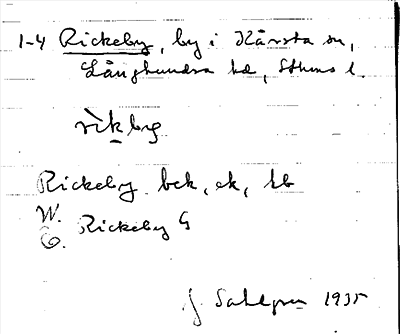 1-4 Rickeby, by i Kårsta sn,
Långhundra hd, Sthms l.
rìkby
Rickeby bek, ek, hb
W.
Ö. Rickeby G
J. Sahlgren 1935